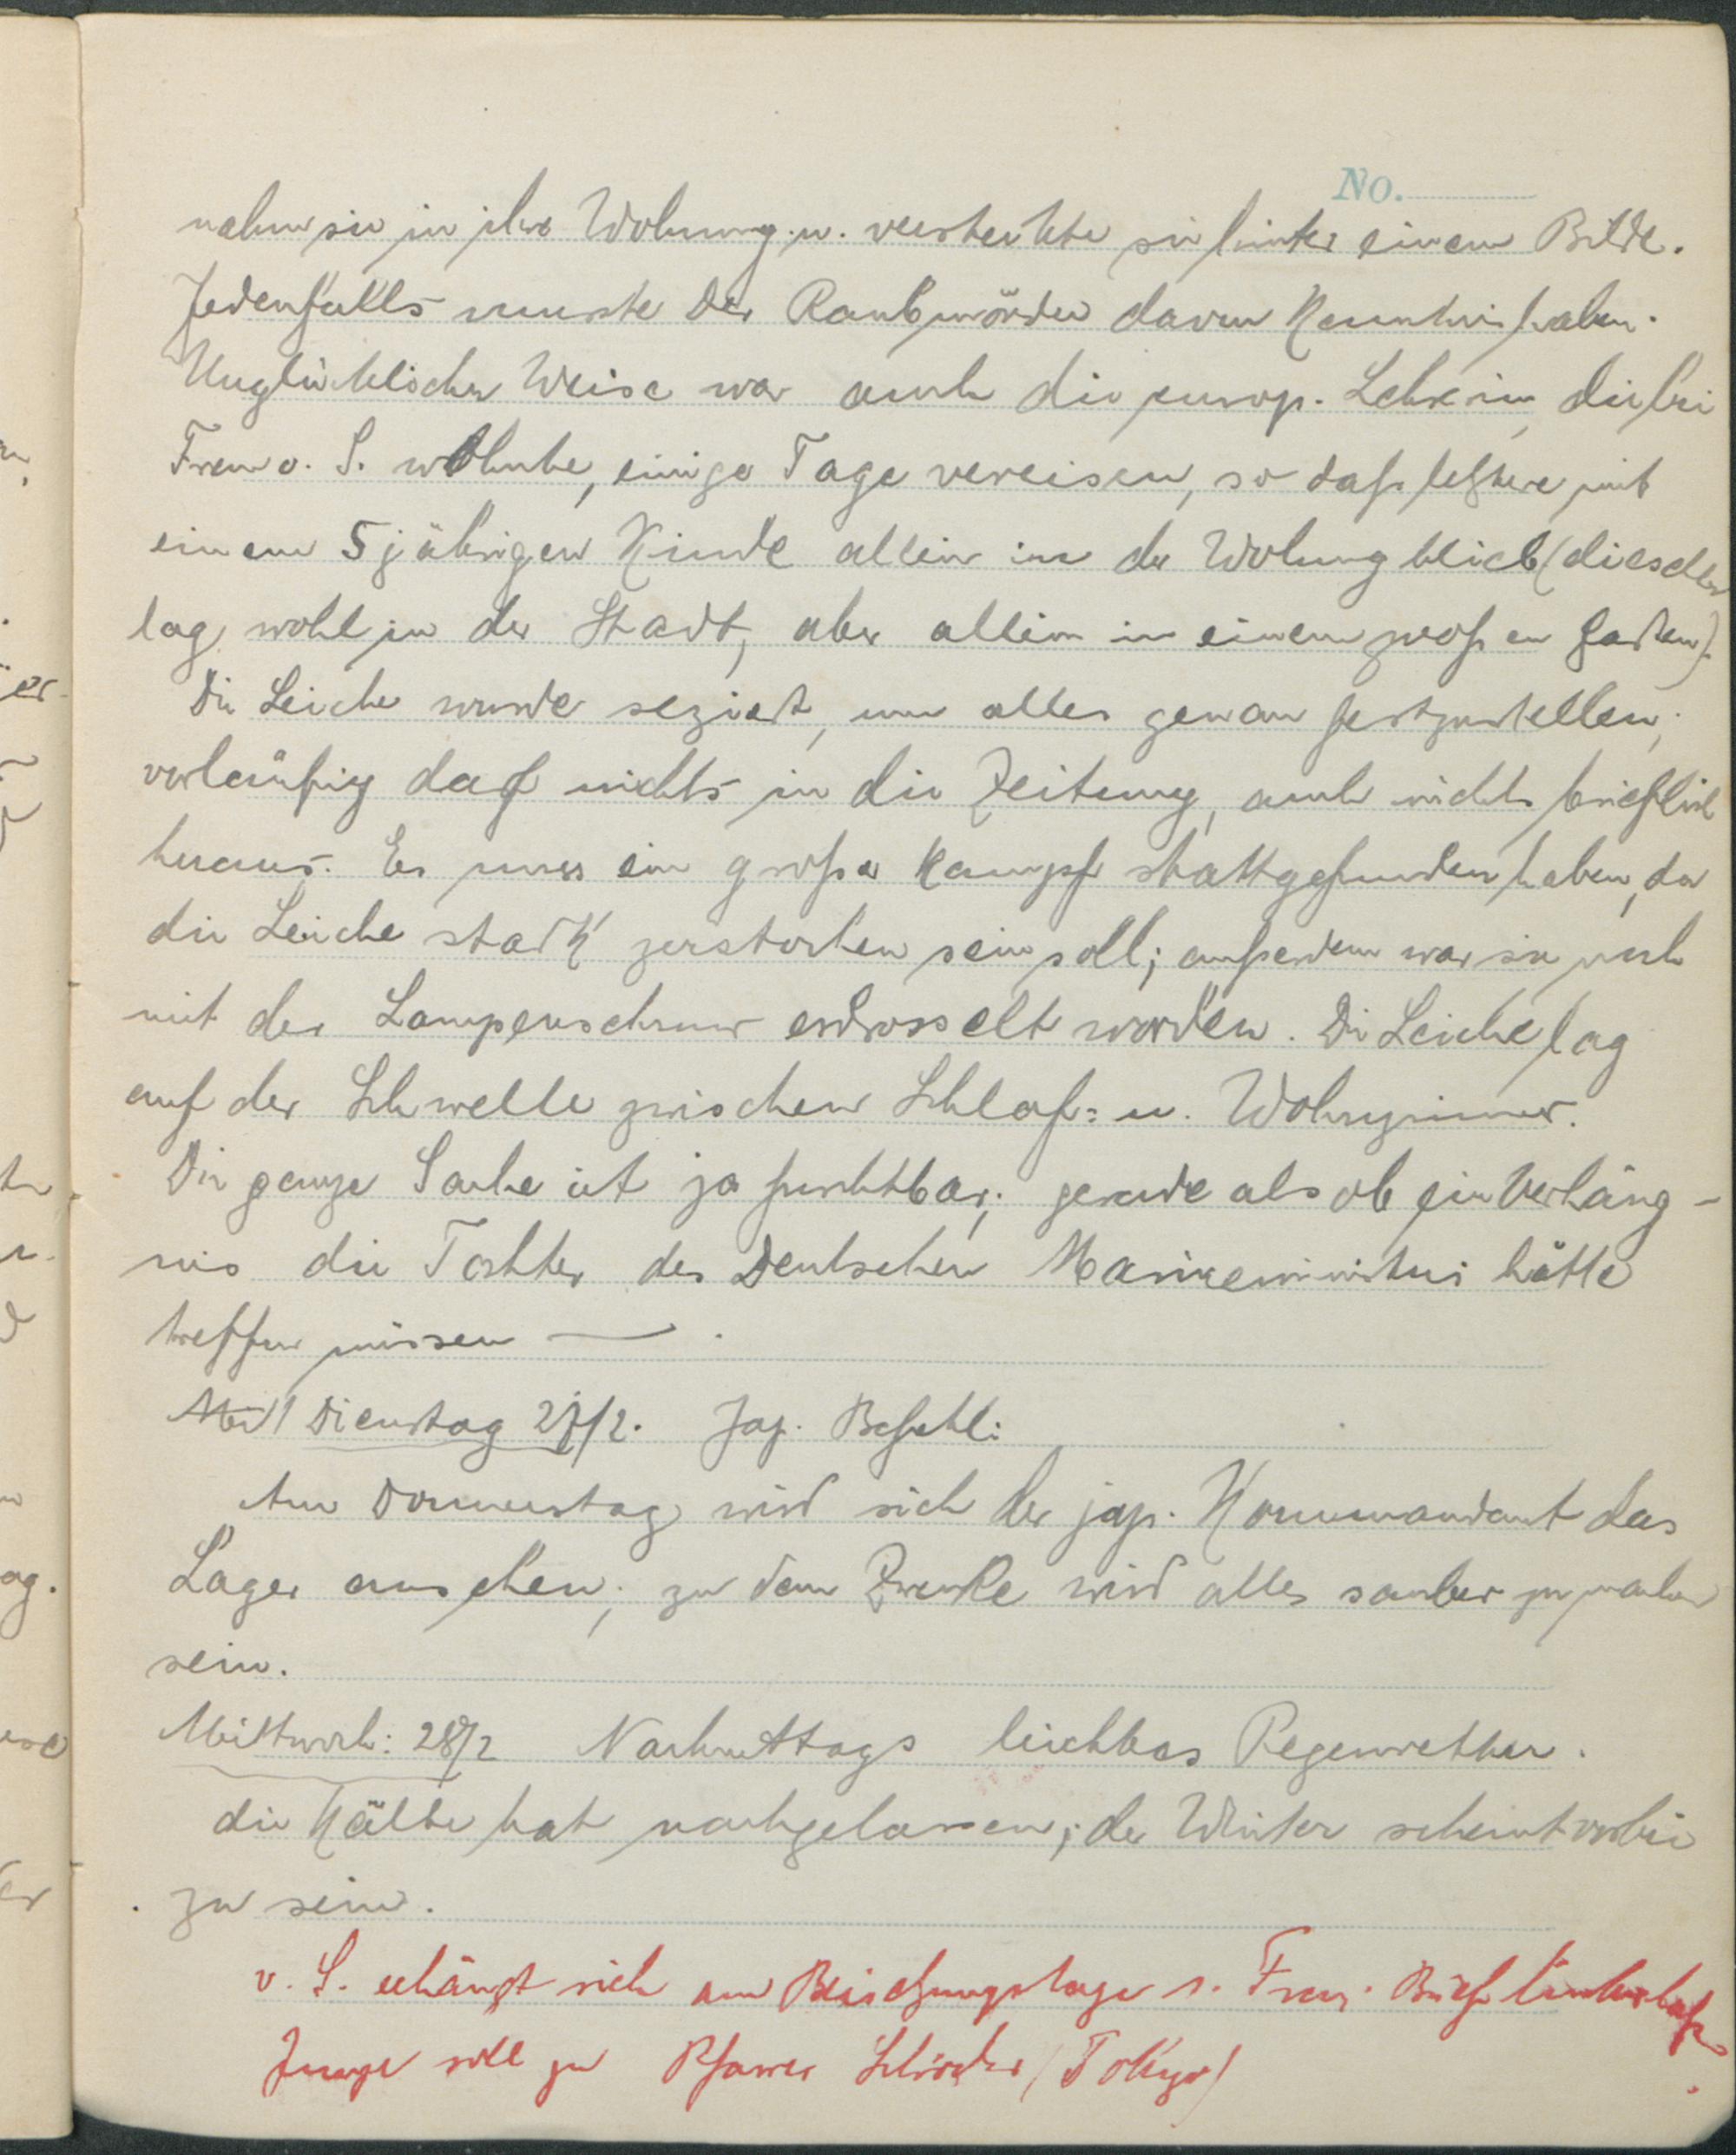 No.
nahm sie in ihre Wohnung u. versteckte sie hinter einem Bilde.
Jedenfalls musste der Raubmörder davon Kenntnis haben.
Unglücklicher Weise war auch die europ. Lehrerin, die bei
Frau v. S. wohnte, einige Tage verreisen, so daß letztere mit
einem 5jährigen Kinde allein in der Wohnung blieb (dieselbe
lag wohl in der Stadt, aber allein in einem großen Garten).
Die Leiche wurde seziert, um alles genau festzustellen;
vorläufig darf nichts in die Zeitung, auch nichts brieflich
heraus. Es muss ein großer Kampf stattgefunden haben, da
die Leiche stark zerstochen sein soll; außerdem war sie noch
mit der Lampenschnur erdrosselt worden. Die Leiche lag
auf der Schwelle zwischen Schlaf= u. Wohnzimmer.
Die ganze Sache ist ja furchtbar; gerade als ob ein Verhäng-
nis die Tochter des Deutschen Marineministers hätte
treffen müssen — .
Dienstag 27/2. Jap. Befehl:
Am Donnerstag wird sich der jap. Kommandant das
Lager ansehen; zu dem Zwecke wird alles sauber zu machen
sein.
Mittwoch: 28/2 Nachmittags leichtes Regenwetter.
die Kälte hat nachgelassen; der Winter scheint vorbei
zu sein.
v. S. erhängt sich am Beisetzungstage s. Frau. Briefe
Junge soll zu Pfarrer Schröder (Tokyo)